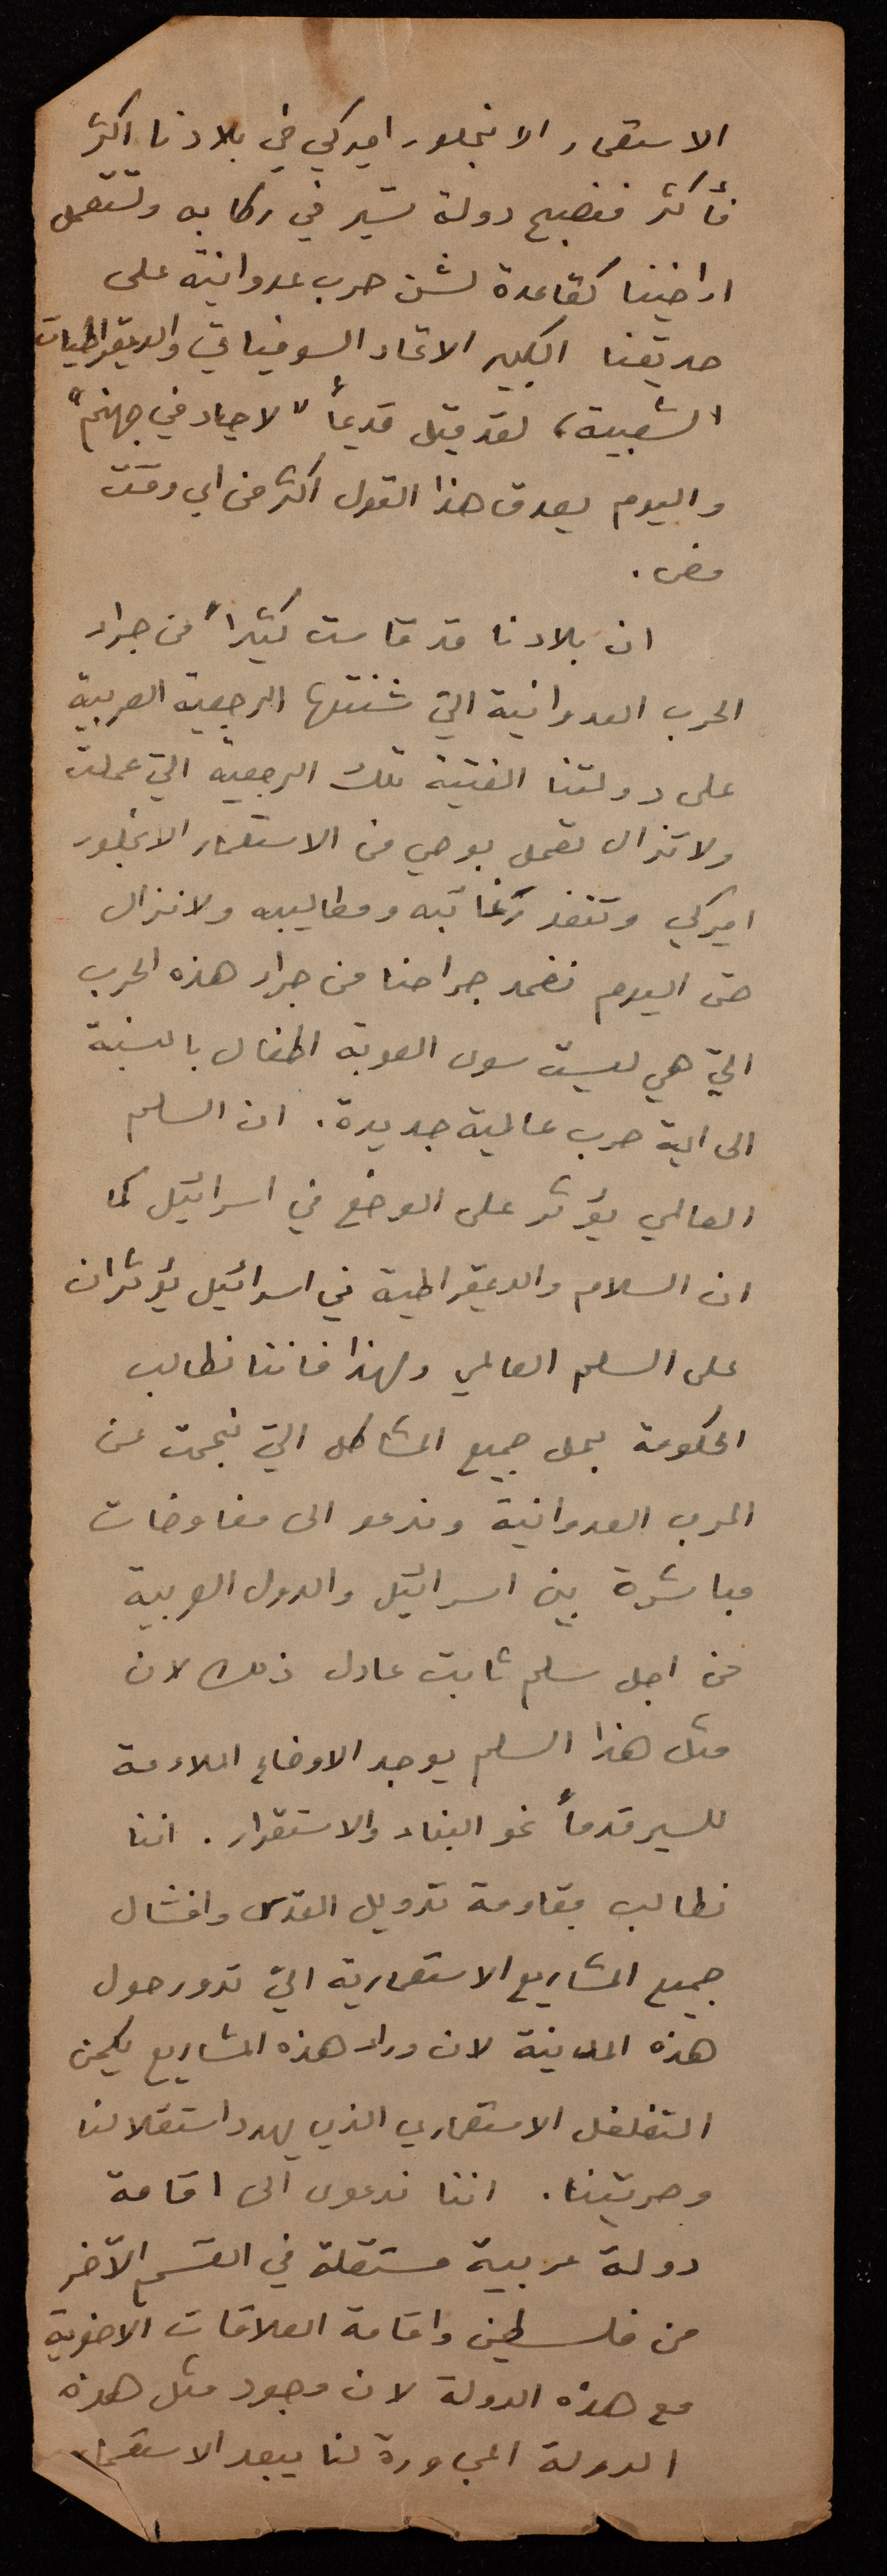 الاستعمار الانجلور اميركي في بلادنا اكثر
فأكثر فنصبح دولة تسير في ركابه وتستعمل
اراضينا كقاعدة لشن حرب عدوانية على
صديقنا الكبير الاتحاد السوفياتي والديمقراطيات
الشعبية، لقد قيل قديماً "لا حياد في جهنم"
واليوم يصدق هذا القول اكثر من اي وقت
مضى.
ان بلادنا قد قاست كثيراً من جراء
الحرب العدوانية التي شنتها الرجعية العربية
على دولتنا الفتية تلك الرجعية التي عملت
ولا تزال تعمل بوحي من الاستعمار الانجلور
اميركي وتنفذ رغائبه ومطاليبه ولا نزال
حتى اليوم نضمد جراحنا من جراء هذه الحرب
التي هي ليست سوى العوبة اطفال بالنسبة
الى اية حرب عالمية جديدة. ان السلم
العالمي يؤثر على الوضع في اسرائيل كما
ان السلام والديمقراطية في اسرائيل يؤثران
على السلم العالمي ولهذا فاننا نطالب
الحكومة بحل جميع المشاكل التي نجمت عن
الحرب العدوانية وندعو الى مفاوضات
مباشرة بين اسرائيل والدول العربية
من اجل سلم ثابت عادل ذلك لان
مثل هذا السلم يوجد الاوضاع الملاءمة
للسير قدماً نحو البناء والاستقرار. اننا
نطالب بمقاومة تدويل القدس وافشال
جميع المشاريع الاستعمارية التي تدور حول
هذه المدينة لان وراء هذه المشاريع يكمن
التغلغل الاستعماري الذي يهدد استقلالنا
وحريتنا. اننا ندعوى الى اقامة
دولة عربية مستقلة في القسم الآخر
من فلسطين واقامة العلاقات الاخوية
مع هذه الدولة لان وجود مثل هذه
الدولة المجاورة لنا يبعد الاستعمار